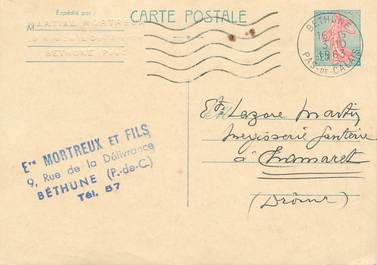 CARTE POSTALE
Expédié par :
MARTIAL MORTREUX
BETHUNE
BÉTHUNE
1963
PAS-DE-CALAIS
Ets Lazare Martin
Menuiserie
à Chamaret
(Drôme)
Ets MORTREUX ET FILS
9, Rue de la Délivrance
BÉTHUNE (P.-de-C.)
Tél. 57